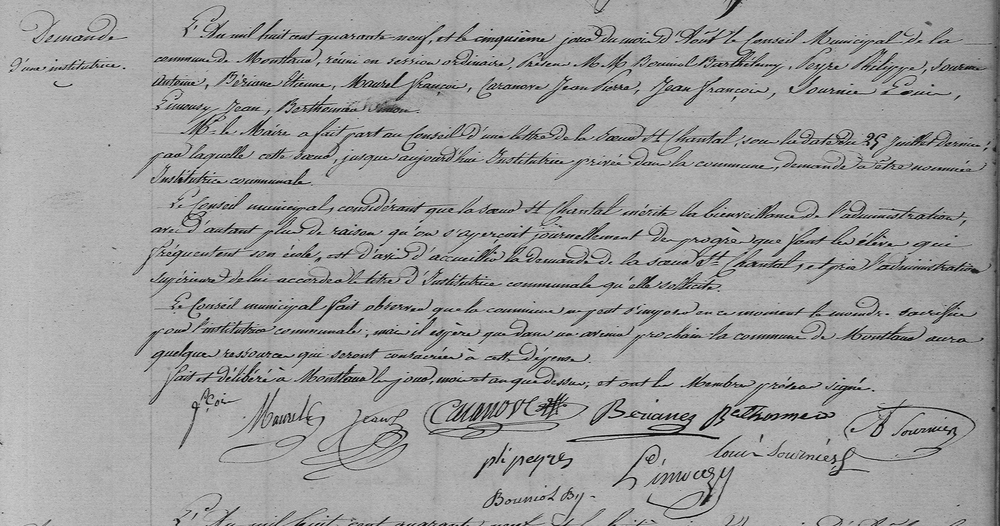 Demande
d'une institutrice.
L'An mil huit cent quarante-neuf, et le cinquième jour du mois d'Août le Conseil Municipal de la
commune de Montlaur, réuni en session ordinaire, présen M.M. Bouniol Barthélemy, Peyre Philippe, Sournie
Antoine, Étienne, Maurel François, Cazanove Jean Pierre, Jean François, Sournie Louis,
Limousy Jean, Simon.
Mr. le Maire a fait part au Conseil d'une lettre de la Sœur St Chantal, sou la date du 25 Juillet dernier;
par laquelle cette sœur, jusque aujourd'hui Institutrice privée dans la commune, demande à être nommée
Institutrice communale.
Le Conseil municipal, considérant que la sœur St Chantal mérite la bienveillance de l'administration,
avec d'autant plus de raison qu'on s'aperçoit journellement de progrè que font le élève qui
fréquentent son école, est d'avis d'accueillir la demande de la sœur St Chantal, et prie l'administration
Supérieure de lui accorder le titre d'Institutrice communale qu'elle sollicite.
Le Conseil municipal fait observer que la commune ne peut s'imposer en ce moment le moindre sacrifice
pour l'institutrice communale; mai il espère que dans un avenir prochain la commune de Montlaur aura
quelque ressource qui seront consacrées à cette dépense.
fait et délibéré à Montlaur le jour, moi et an que dessus, et ont le Membre présen signé.
Maurel Jean Cazanove A Sournies
ph peyres Limouzy Louis Sourniès
Bouniol By
L'An mil huit cent quarante neuf et le huitième